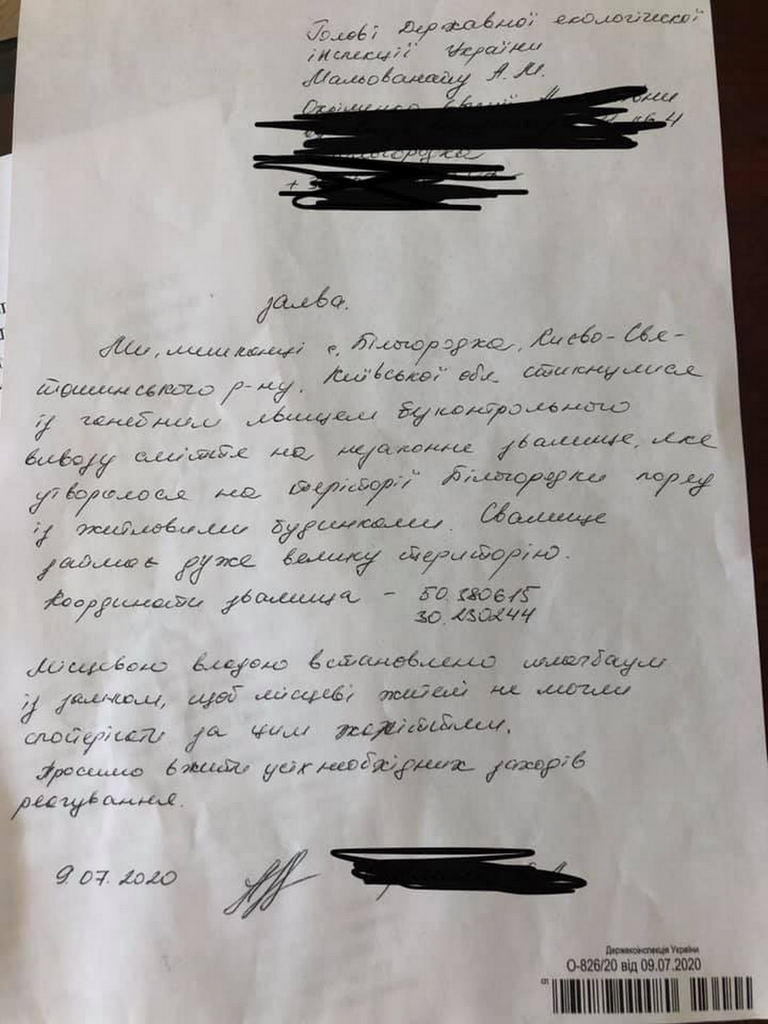 Голові Державної екологіческої
інспекції України
Мальованайу А.М.
заява.
Ми, мешканці с. Білогородка, Києво-Свя-
тошинського р-ну. Київської обл. стикнулися
із ганебним явищем буконтрольного
вивозу сміття на незаконне звалище, яке
утворилося на теріторії Білогородки поряд
із житловими будинками. Свалище
займає дуже велику територію.
Координати звалища - 50.380615
30.230244
Місцевою владою встановлено шлагбаум
із замком, щоб місцеві жителі не могли
спостерігати за цим
Просимо вжити усіх необхідних заходів
реагування.
9.07.2020
Держекоінспекція України
О-826/20 від 09.07.2020